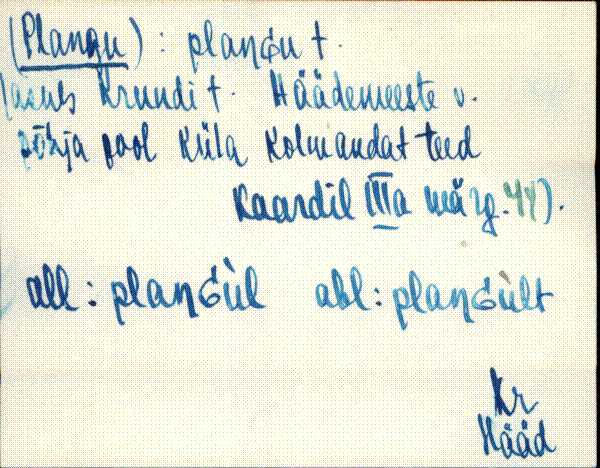 (Plangu): planGu t.
Krundi t. Häädemeeste v.
põhja pool küla kolmandat teed
Kaardil IIIa märg. 44).
all: planGùl abl: planGùlt
Kr
Hääd